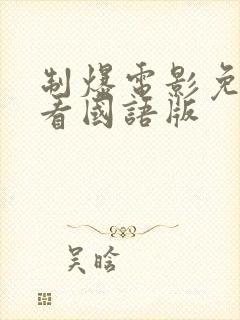 制爆電影免
看國語版
吴晗